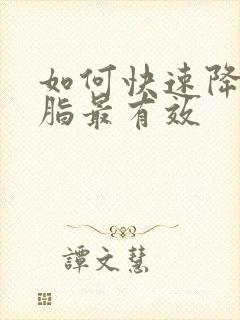 如何快速降
脂最有效
譚文慧